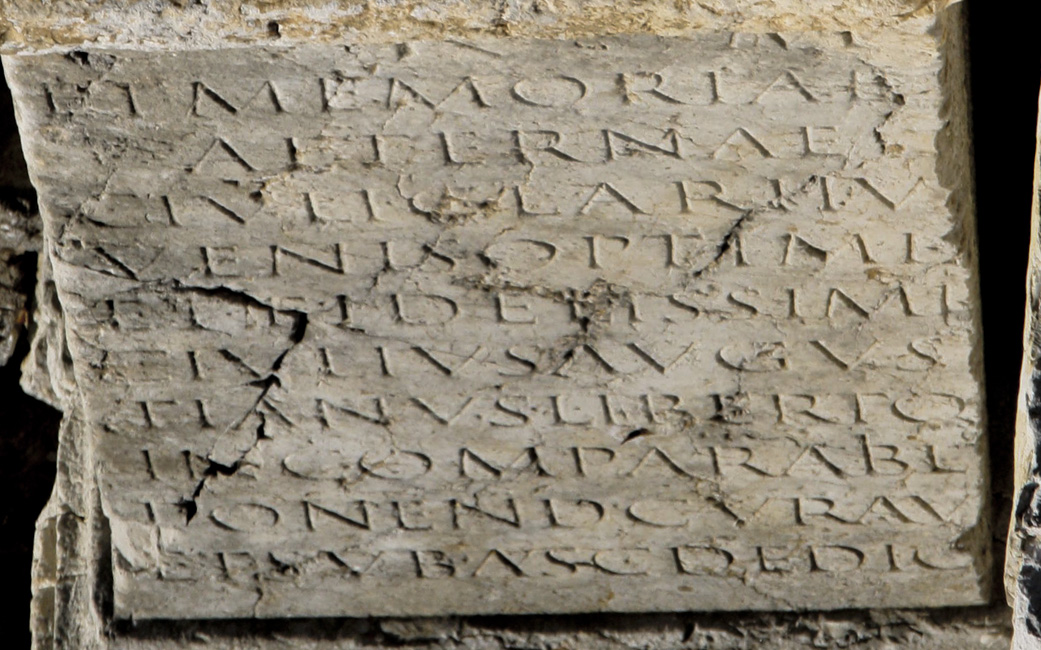 ET MEMORIAE
AETERNAE
C IVLI CLARI IV
VENIS OPTIMI
ET FIDELISSIMI
C IVLIVS AVGVS
TIANVS LIBERTO
INCOMPARABL
PONEND CVRAV
ET SVB ASC DEDIC